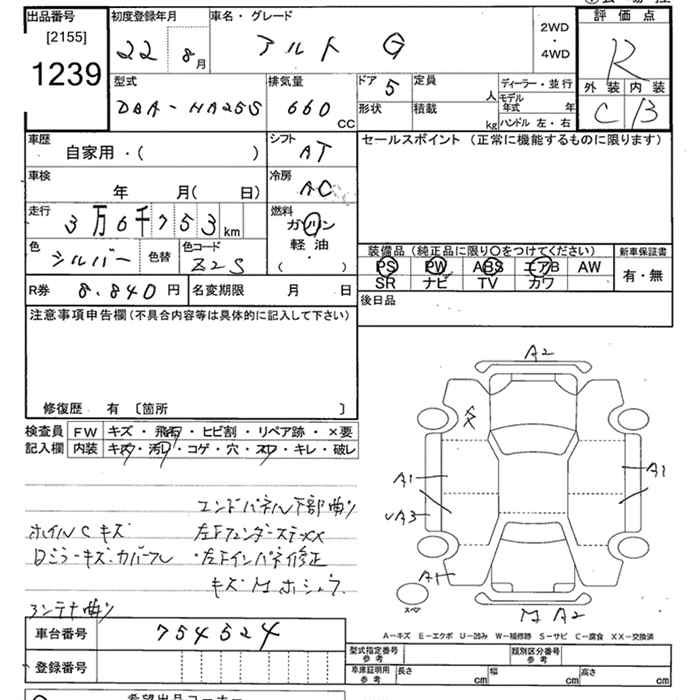 出品番号
[2155]
1239
初度登録年月
22 8月
車名・グレード
アルト G
2WD
・
4WD
評価点
R
外装 内装
C B
型式
DBA-HA25S
排気量
660 CC
ドア 5
形状
定員 人
積載 kg
ディーラー・並行
モデル年式 年
ハンドル 左・右
車歴
自家用・( )
シフト
AT
セールスポイント (正常に機能するものに限ります)
車検
年 月( 日)
冷房
AC
走行
3万6千753km
燃料
ガソリン
軽油
( ・ )
色
シルバー
色替
色コード
Z2S
装備品 (純正品に限り○をつけてください)
PS PW ABS エアB AW
SR ナビ TV カワ
新車保証書
有・無
R券 8.840円
名変期限 月 日
後日品
注意事項申告欄(不具合内容等は具体的に記入して下さい)
修復歴 有 〔箇所 〕
検査員記入欄
FW キズ・飛石・ヒビ割・リペア跡・×要
内装 キズ・汚レ・コゲ・穴・スレ・キレ・破レ
エンドパネル下部曲り
ホイルCキズ 左Fフェンダーステーxx
Dミラーキズ・カバーフル ・左Fインパネ修正
アンテナ曲り
A2
A1
A1
A3
A1
スペア
A2
A－キズ E－エクボ U－凹み W－補修跡 S－サビ C－腐食 XX－交換済
車台番号 754524
登録番号
型式指定番号 参考
類別区分番号 参考
車庫証明用 参考
長さ cm
幅 cm
高さ cm
希望出品コーナー